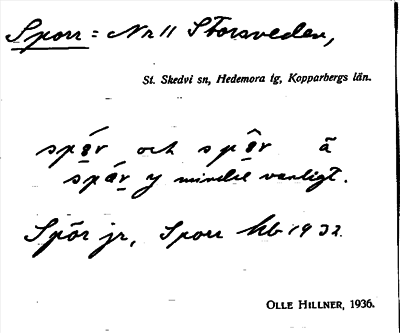 Sporr = Nr 11 Storsveden,
St. Skedvi sn, Hedemora tg, Kopparbergs län.
och
mindre vanligt.
Spör jr, Sporr hb 1932.
OLLE HILLNER, 1936.